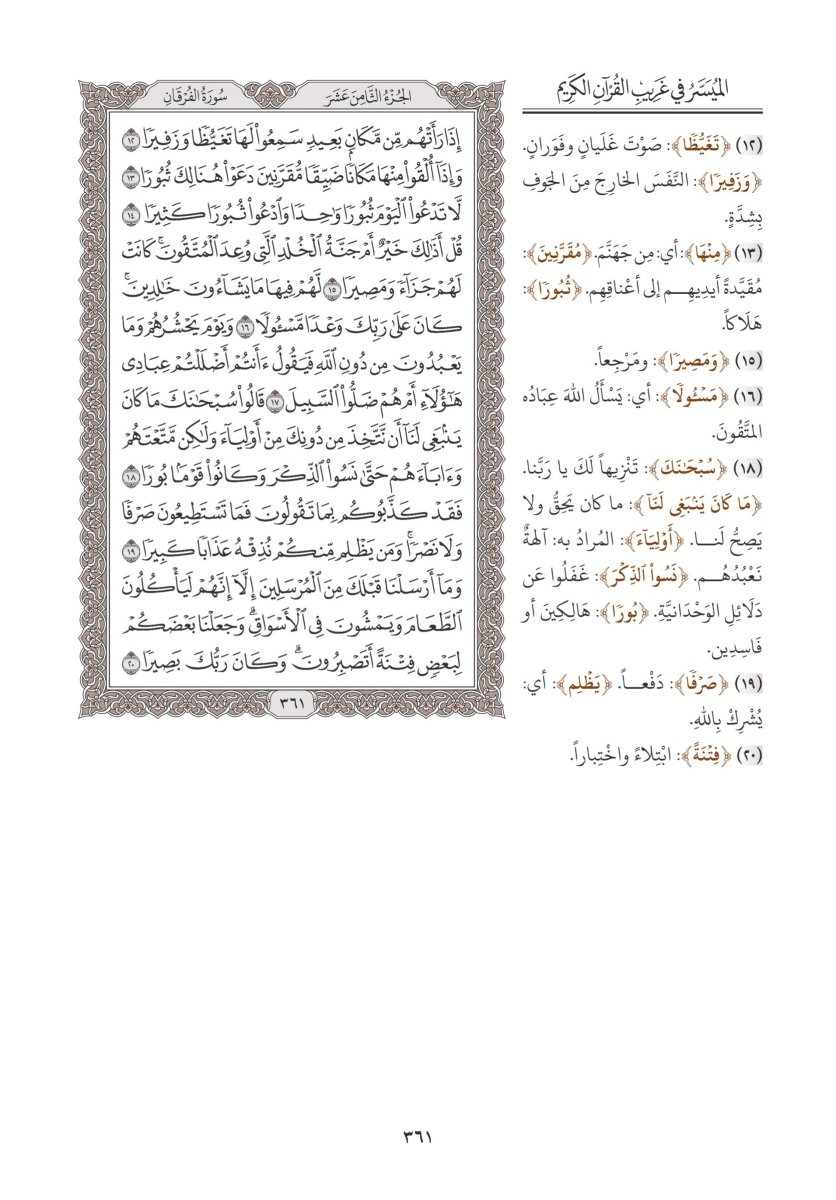 الميسر في غريب القرآن الكريم
(١٢) ﴿تَغَيُّظٗا﴾: صَوْتَ غَلَيانٍ وفَوَرانٍ.
﴿وَزَفِيرٗا﴾: النَّفَسَ الخارِجَ مِنَ الجَوفِ
بِشِدَّةٍ.
(١٣) ﴿مِنۡهَا﴾: أي: مِن جَهَنَّمَ. ﴿مُقَرَّنِينَ﴾:
مُقَيَّدةً أيدِيهِم إلى أعْناقِهِم. ﴿ثُبُورٗا﴾:
هَلَاكاً.
(١٥) ﴿وَمَصِيرٗا﴾: ومَرْجِعاً.
(١٦) ﴿مَسۡـُٔولٗا﴾: أي: يَسْأَلُ اللهَ عِبَادُه
المتَّقُونَ.
(١٨) ﴿سُبۡحَٰنَكَ﴾: تَنْزِيهاً لَكَ يا رَبَّنا.
﴿مَا كَانَ يَنۢبَغِي لَنَآ﴾: ما كان يَحِقُّ ولا
يَصِحُّ لَنا. ﴿أَوۡلِيَآءَ﴾: المُرادُ به: آلهةٌ
نَعْبُدُهُم. ﴿نَسُواْ ٱلذِّكۡرَ﴾: غَفَلُوا عَن
دَلَائِلِ الوَحْدَانيَّةِ. ﴿بُورٗا﴾: هَالِكِينَ أو
فَاسِدِين.
(١٩) ﴿صَرۡفٗا﴾: دَفْعاً. ﴿يَظۡلِم﴾: أي:
يُشْرِكْ بِاللهِ.
(٢٠) ﴿فِتۡنَةً﴾: ابْتِلاءً واخْتِباراً.
الجزء الثامن عشر
سورة الفرقان
إِذَا رَأَتۡهُم مِّن مَّكَانِۭ بَعِيدٖ سَمِعُواْ لَهَا تَغَيُّظٗا وَزَفِيرٗا ١٢
وَإِذَآ أُلۡقُواْ مِنۡهَا مَكَانٗا ضَيِّقٗا مُّقَرَّنِينَ دَعَوۡاْ هُنَالِكَ ثُبُورٗا ١٣
لَّا تَدۡعُواْ ٱلۡيَوۡمَ ثُبُورٗا وَٰحِدٗا وَٱدۡعُواْ ثُبُورٗا كَثِيرٗا ١٤
قُلۡ أَذَٰلِكَ خَيۡرٌ أَمۡ جَنَّةُ ٱلۡخُلۡدِ ٱلَّتِي وُعِدَ ٱلۡمُتَّقُونَۚ كَانَتۡ
لَهُمۡ جَزَآءٗ وَمَصِيرٗا ١٥ لَّهُمۡ فِيهَا مَا يَشَآءُونَ خَٰلِدِينَۚ
كَانَ عَلَىٰ رَبِّكَ وَعۡدٗا مَّسۡـُٔولٗا ١٦ وَيَوۡمَ يَحۡشُرُهُمۡ وَمَا
يَعۡبُدُونَ مِن دُونِ ٱللَّهِ فَيَقُولُ ءَأَنتُمۡ أَضۡلَلۡتُمۡ عِبَادِي
هَٰٓؤُلَآءِ أَمۡ هُمۡ ضَلُّواْ ٱلسَّبِيلَ ١٧ قَالُواْ سُبۡحَٰنَكَ مَا كَانَ
يَنۢبَغِي لَنَآ أَن نَّتَّخِذَ مِن دُونِكَ مِنۡ أَوۡلِيَآءَ وَلَٰكِن مَّتَّعۡتَهُمۡ
وَءَابَآءَهُمۡ حَتَّىٰ نَسُواْ ٱلذِّكۡرَ وَكَانُواْ قَوۡمَۢا بُورٗا ١٨
فَقَدۡ كَذَّبُوكُم بِمَا تَقُولُونَ فَمَا تَسۡتَطِيعُونَ صَرۡفٗا
وَلَا نَصۡرٗاۚ وَمَن يَظۡلِم مِّنكُمۡ نُذِقۡهُ عَذَابٗا كَبِيرٗا ١٩
وَمَآ أَرۡسَلۡنَا قَبۡلَكَ مِنَ ٱلۡمُرۡسَلِينَ إِلَّآ إِنَّهُمۡ لَيَأۡكُلُونَ
ٱلطَّعَامَ وَيَمۡشُونَ فِي ٱلۡأَسۡوَاقِۗ وَجَعَلۡنَا بَعۡضَكُمۡ
لِبَعۡضٖ فِتۡنَةً أَتَصۡبِرُونَۗ وَكَانَ رَبُّكَ بَصِيرٗا ٢٠
٣٦١
٣٦١